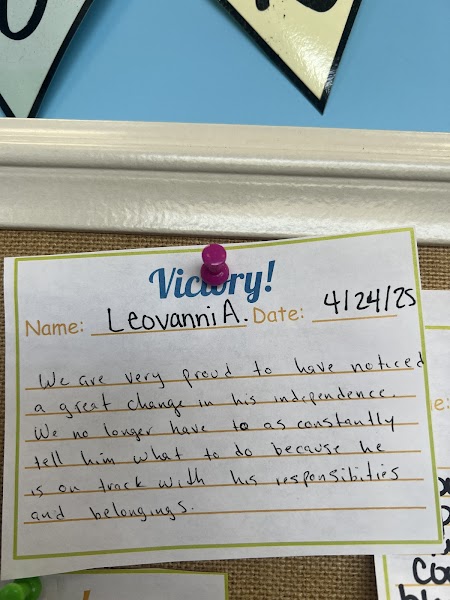 Victory!
Name: Leovanni A. Date: 4/24/25
We are very proud to have noticed
a great change in his independence.
We no longer have to as constantly
tell him what to do because he
is on track with his responsibities
and belongings.
e: